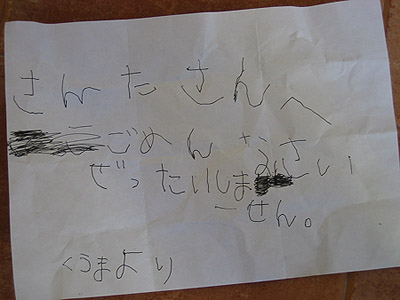 さんたさんへ
ごめんなさい
ぜったいしま
せん。
くうまより